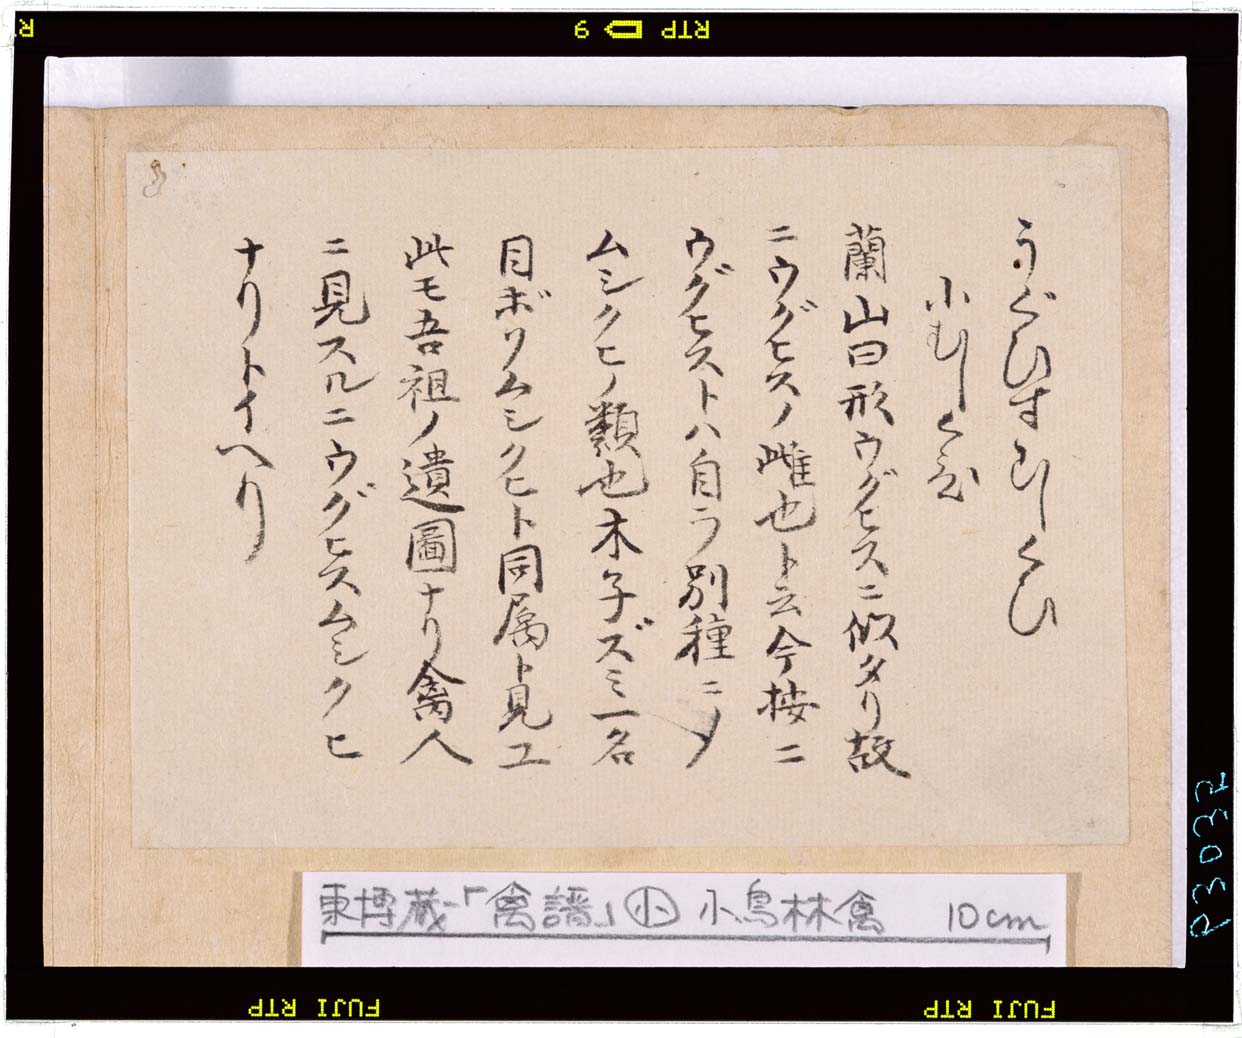 うぐひすむしくひ
小むしくひ
蘭山曰形ウグヒスニ似タリ故
ニウグヒスノ雌也ト云今按ニ
ウグヒストハ自ラ別種ニ〆
ムシクヒノ類也木子ズミ一名
目ボソムシクヒト同属ト見エ
此モ吾祖ノ遺圖ナリ禽人
ニ見スルニウグヒスムシクヒ
ナリトイヘリ
東博蔵-「禽譜」小 小鳥林禽 10cm
RTP 9
FUJI RTP
FUJI RTP
P3032